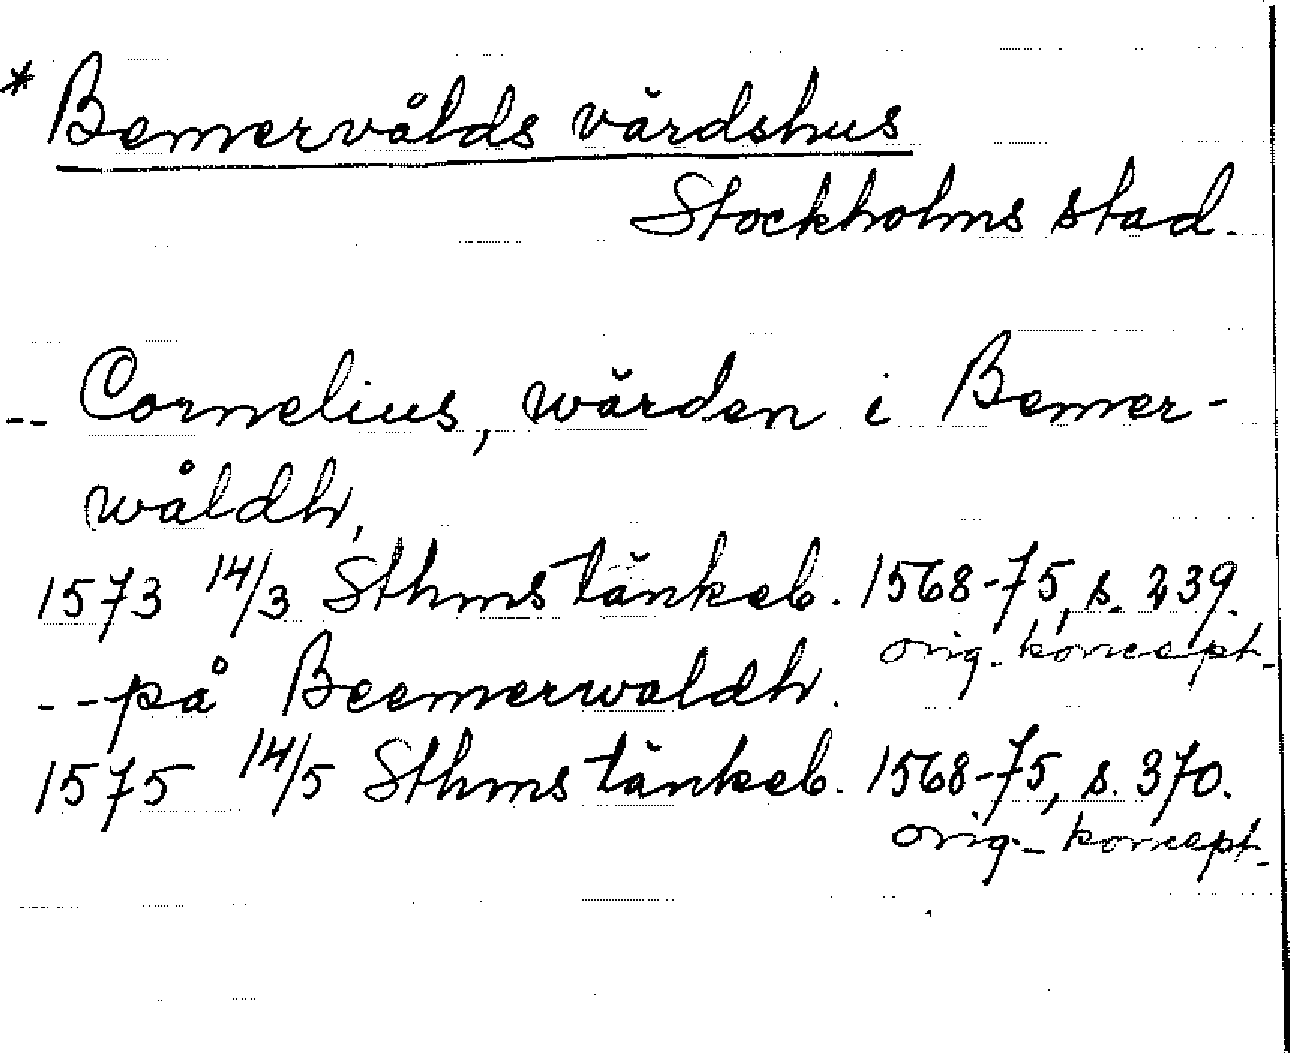 * Bemervålds värdshus
Stockholms stad.
-- Cornelius, wärden i Bemer-
wåldh,
1573 14/3 Sthms tänkeb. 1568-75, s. 239.
orig.-koncept.
-- på Beemerwaldh.
1575 14/5 Sthms tänkeb. 1568-75, s. 370.
orig.-koncept.